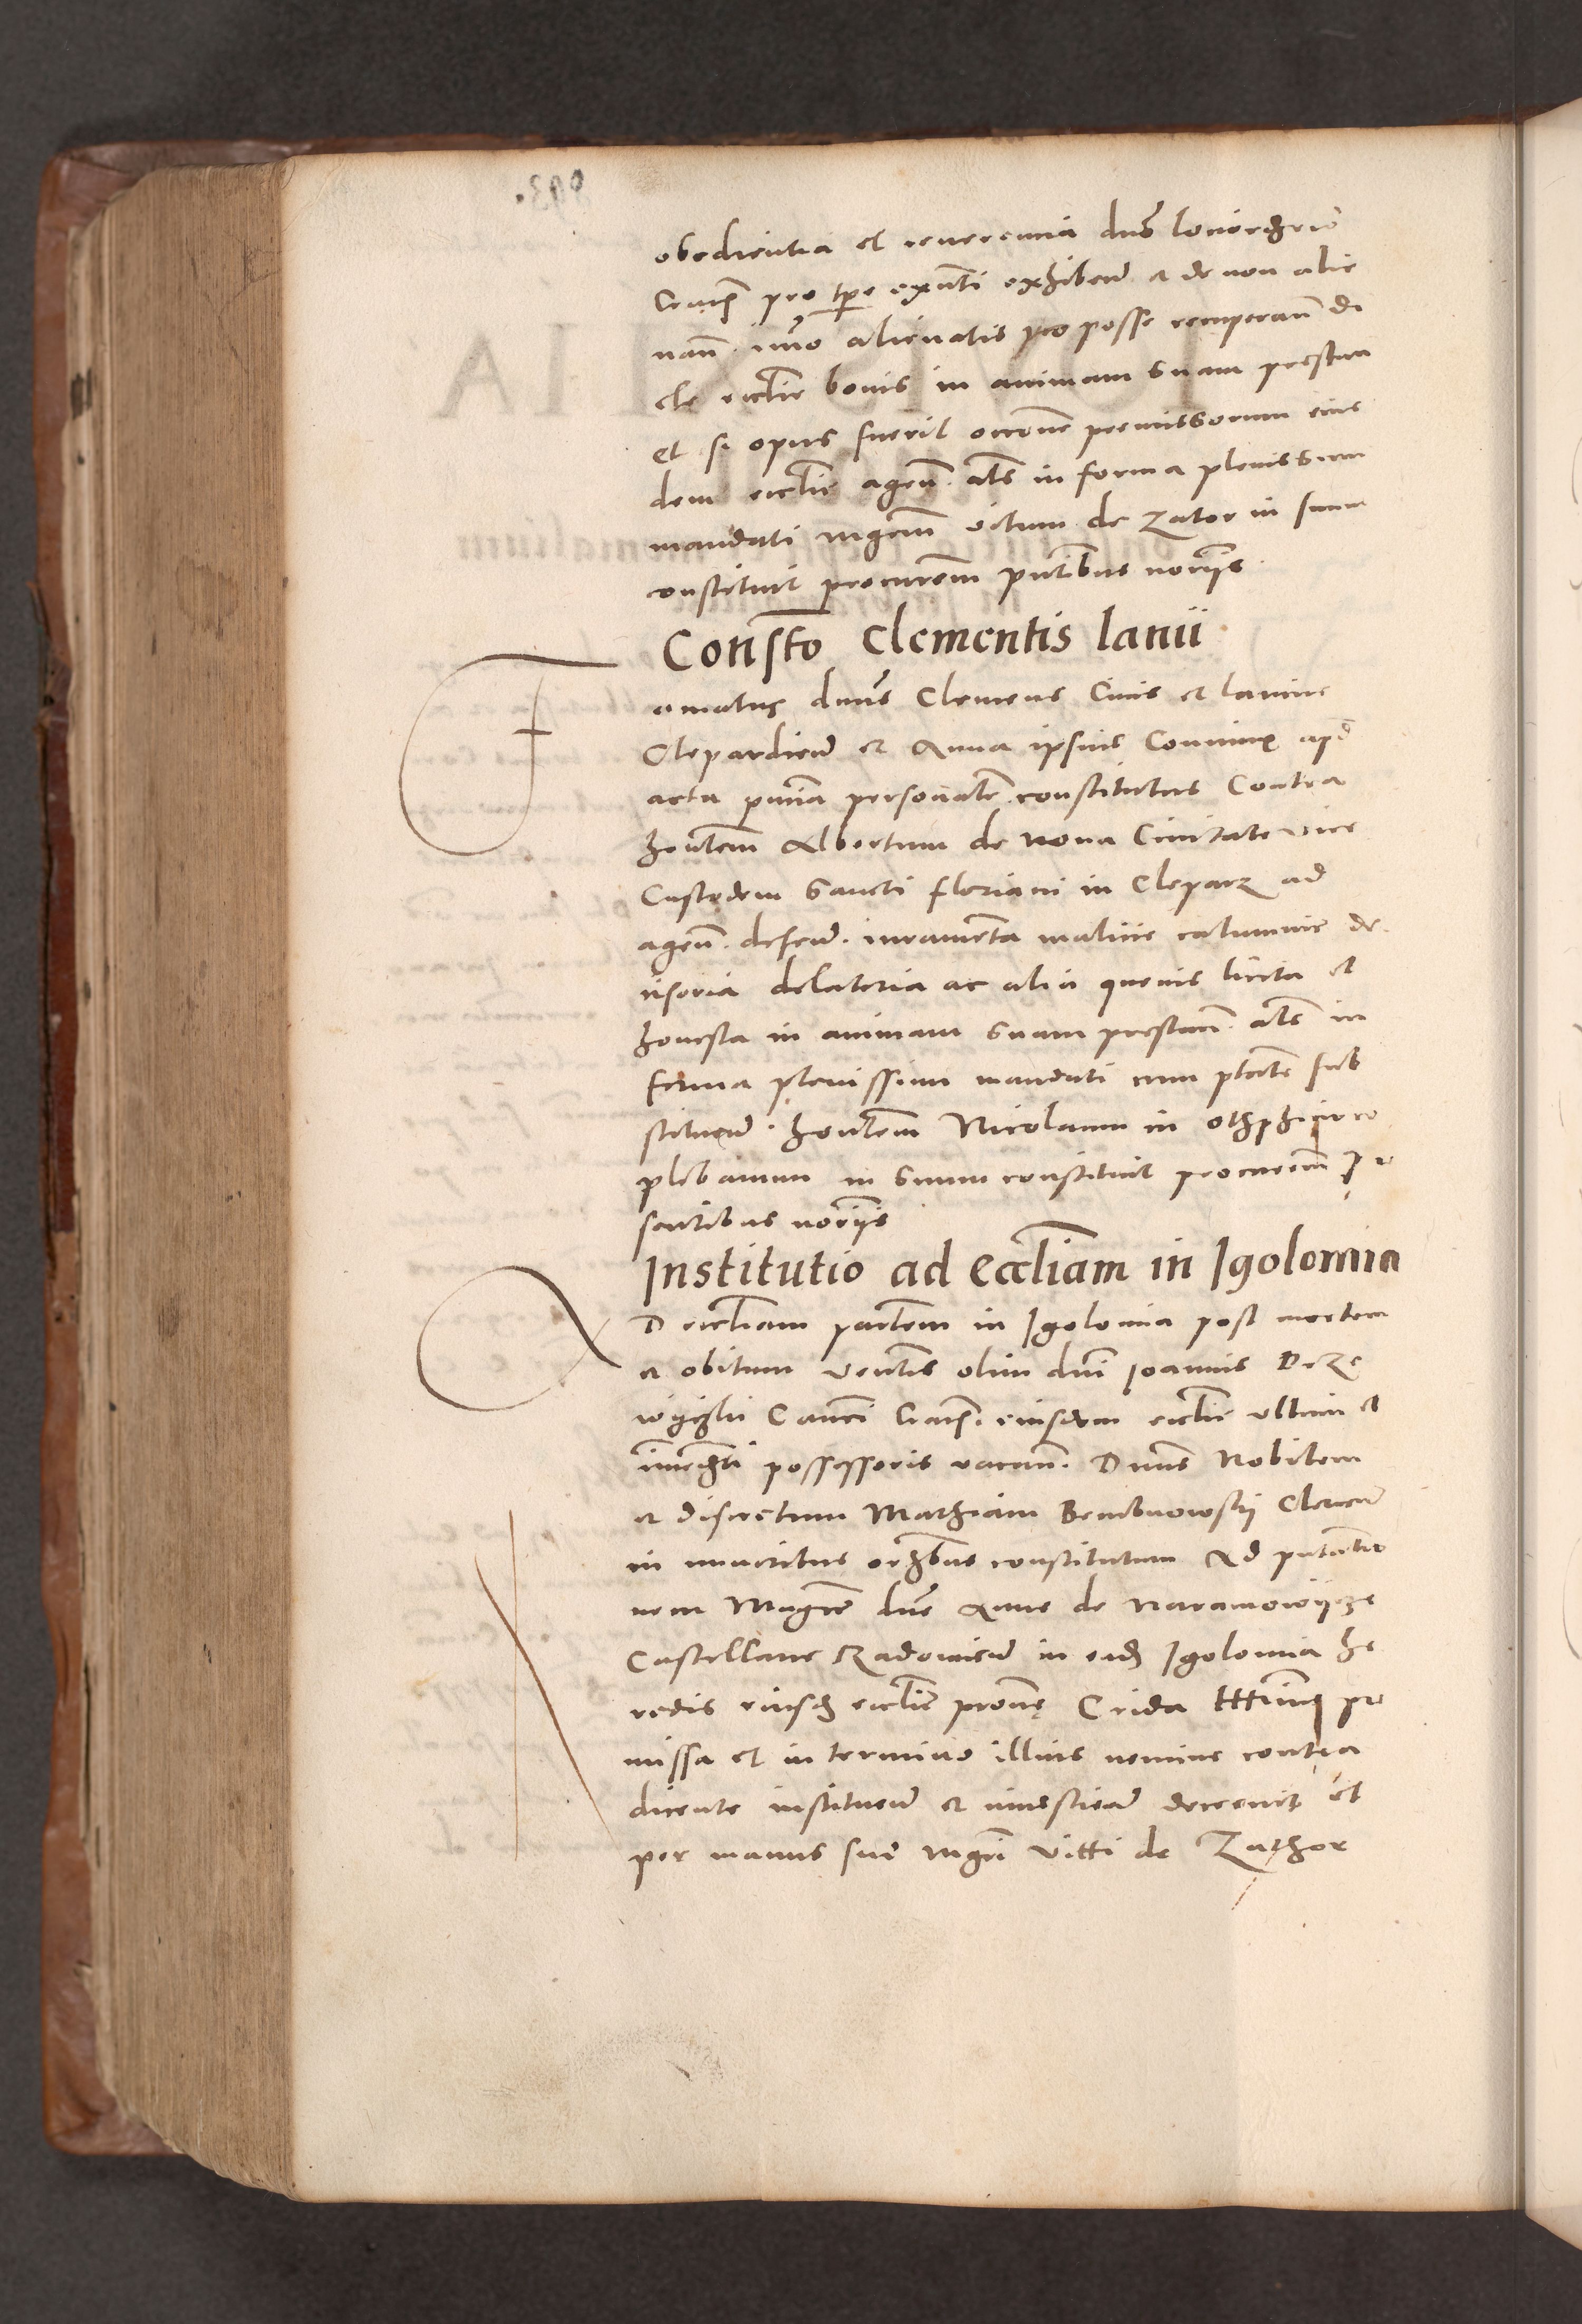 obedientia et reverencia dnis loci ordinario
Cracn̄ pro tpe exnti exhibend et de non alie
nan̄. imo alienatis pro posse recuperan̄ di
cte ecclie bonis in animam suam prestan
et si opus fuerit occone premissorum eius
dem ecclie agen̄. als in forma plenissim
mandati mgrm vitum de Zator in suum
constituit procurem pntibus norijs
Constto Clementis lanii
Famatus dnus Clemens Civis et lanius
Clepardien̄ et Anna ipsius Coniunx apd
acta pntia personalr constitutus Contra
hontem Albertum de nova Civitate vice
Custodem Sancti floriani in Cleparz ad
agen̄. defen̄. iuramenta malicie calumnie de
cisoria delatoria ac alia quevis licita et
honesta in animam suam prestan̄. als in
forma plenissim mandati cum ptate sub
stituen̄. hontem Nicolaum in
plebanum in suum constituit procurem pre
sentibus norijs
Institutio ad eccliam in Igolomia
AD eccliam parlem in Igolomia post mortem
et obitum ventis olim dni Joannis
Canci Cracn̄. eiusdem ecclie ultimi et
imediti possessoris vacan̄. Dnus Nobilem
et discretum Mathiam Bembnowskij Clericum
in minoribus ordibus constitutum Ad pntatio
nem Magce dne Anne de Naramowijcze
Castellane Radomien̄ in eadē Igolomia he
redis eiusdē ecclie prone Crida pre
missa et in termino illius nemine contra
dicente instituen̄ et investien̄ decrevit et
per manus sue mgri vitti de Zathor